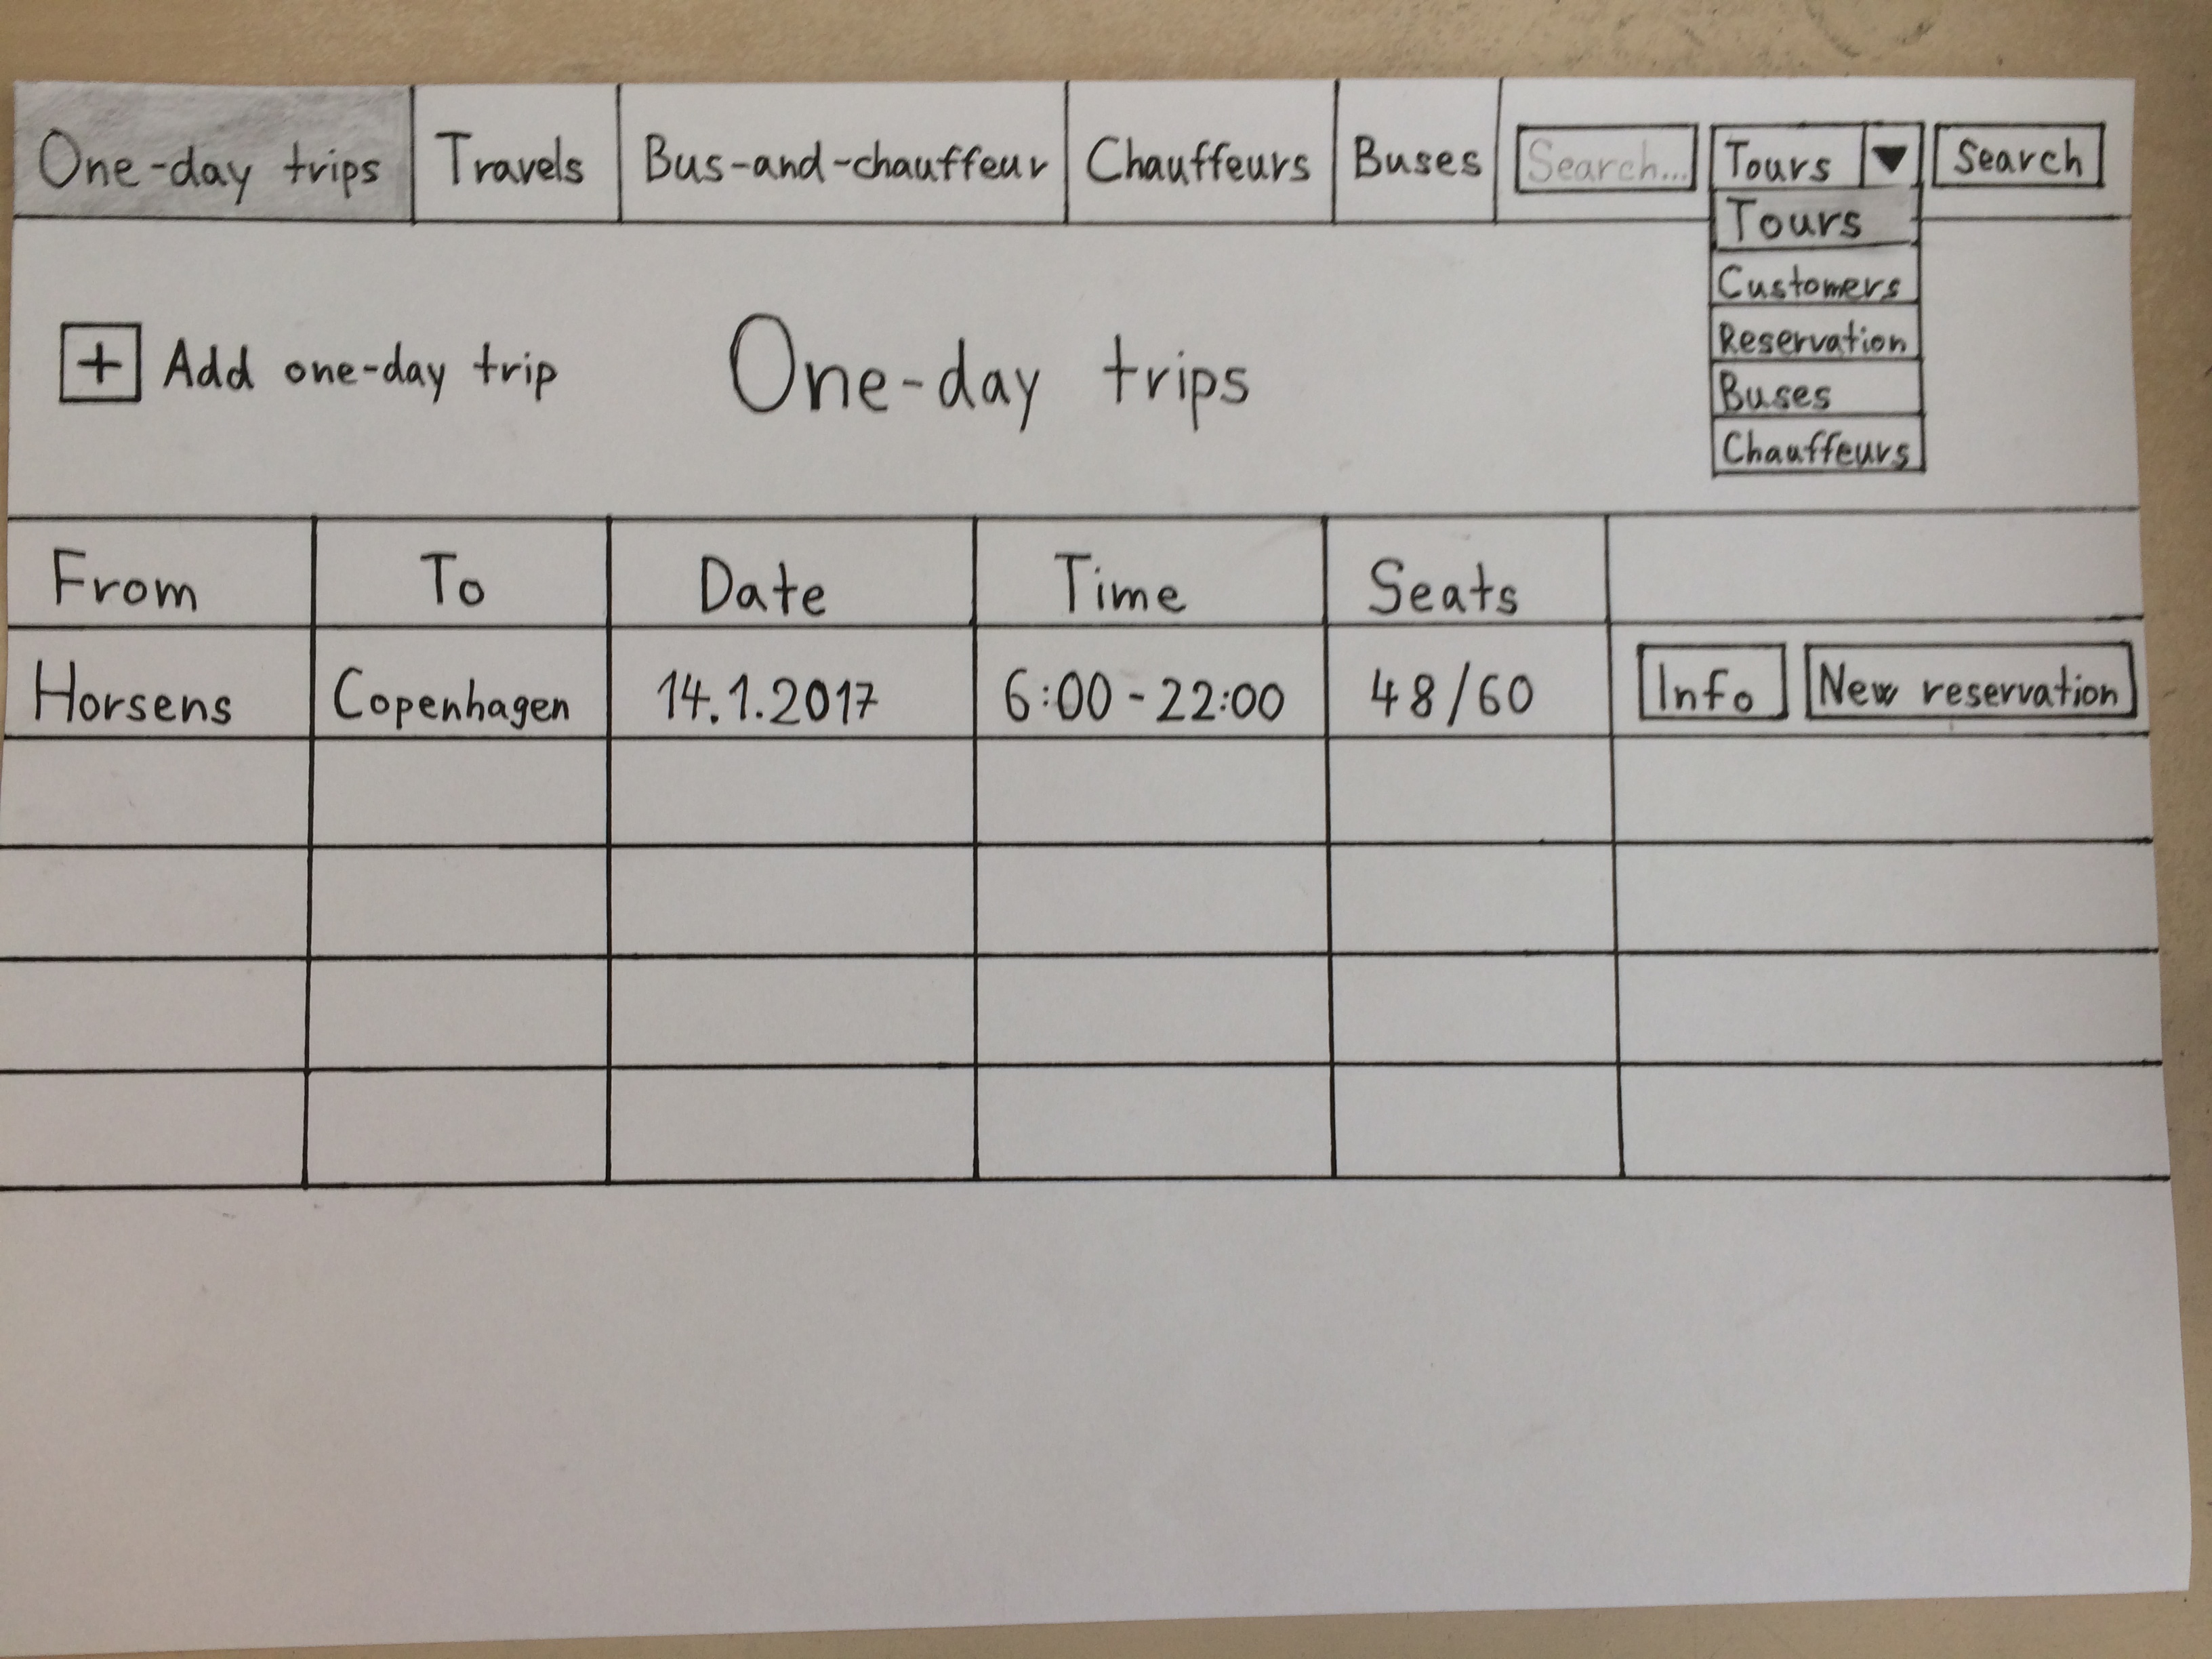 One-day trips Travels Bus-and-chauffeur Chauffeurs Buses Search... Tours Search
Tours
Customers
Reservation
Buses
Chauffeurs
+ Add one-day trip One-day trips
From To Date Time Seats
Horsens Copenhagen 14.1.2017 6:00-22:00 48/60 Info New reservation